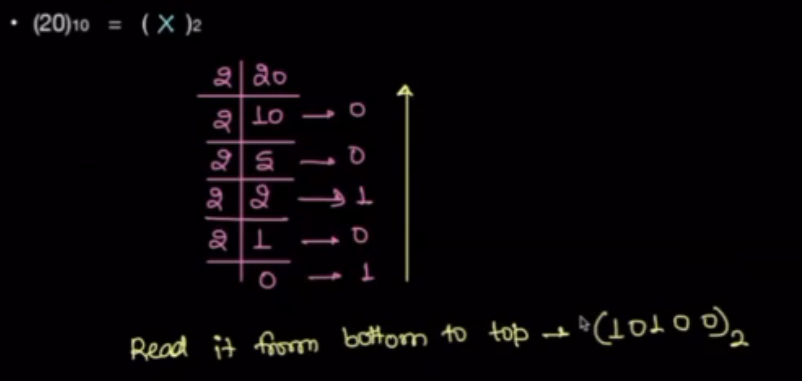 • (20)10 = ( X )2
2 | 20
2 | 10 → 0
2 | 5 → 0
2 | 2 → 1
2 | 1 → 0
0 → 1
Read it from bottom to top → (10100)2